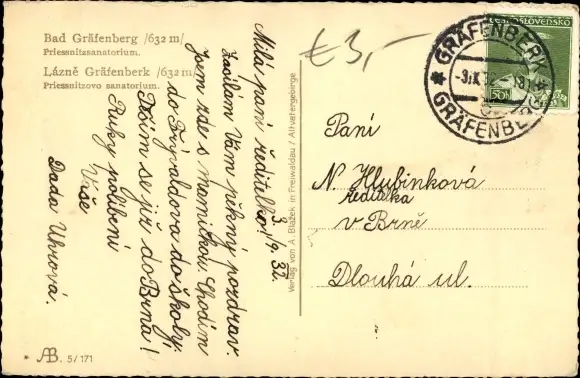 Bad Gräfenberg /632 m/
Priessnitzsanatorium.
Lázně Gräfenberk /632 m/
Priessnitzovo sanatorium.
3./9. 32.
Milá paní ředitelko!
Zasílám Vám pěkný pozdrav.
Jsem zde s mamičkou. Chodím
do Frývaldova do školy.
Těším se již do Brna!
Ruky políbení
Vaše
Dada Uhrová.
AB. 5/171
Verlag von A. Blažek in Freiwaldau / Altvatergebirge
€ 3,-
ČESKOSLOVENSKO
50h
GRÄFENBERK
-3.IX.32
GRÄFENBERG
Paní
N. Hlubinková
ředitelka
v Brně
Dlouhá ul.